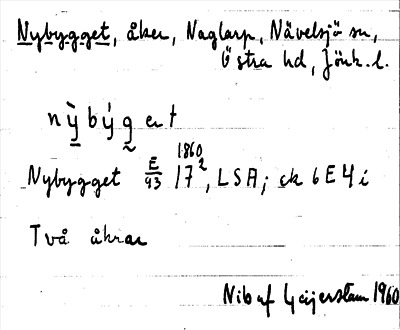 Nybygget, åker, Naglarp, Nävelsjö sn,
Östra hd, Jönk. l.
nỳbýg et
Nybygget E/43 1860 17², LSA; ek 6E4i
Två åkrar
Nib af Geijerstam 1960